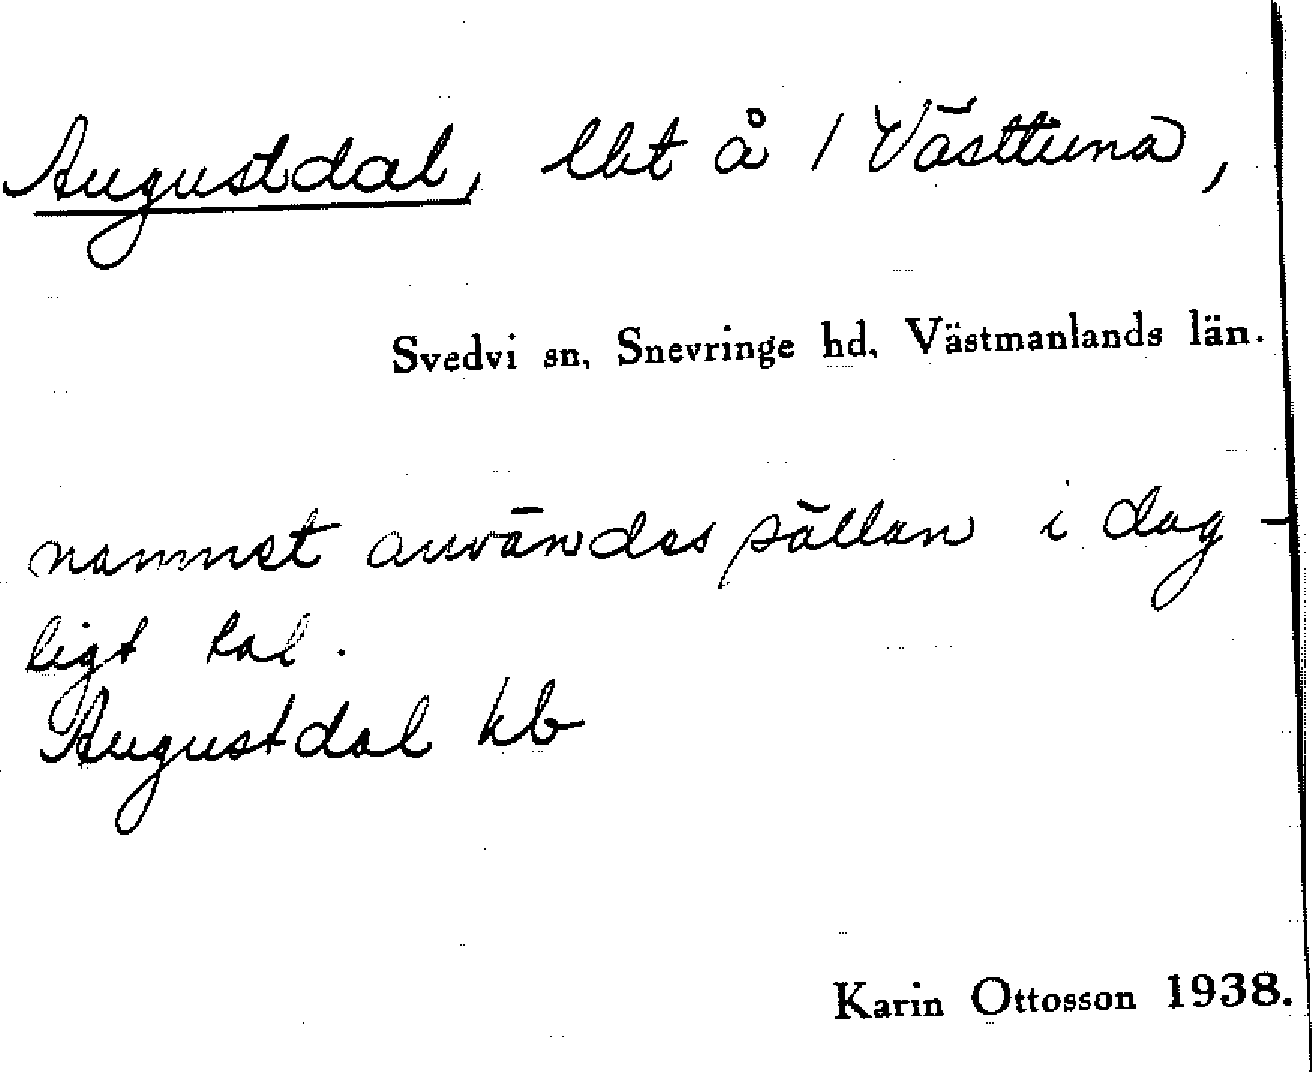 Augustdal, lht å / Västtuna,
Svedvi sn, Snevringe hd, Västmanlands län.
namnet användes sällan i dag-
ligt tal.
Augustdal kb
Karin Ottosson 1938.